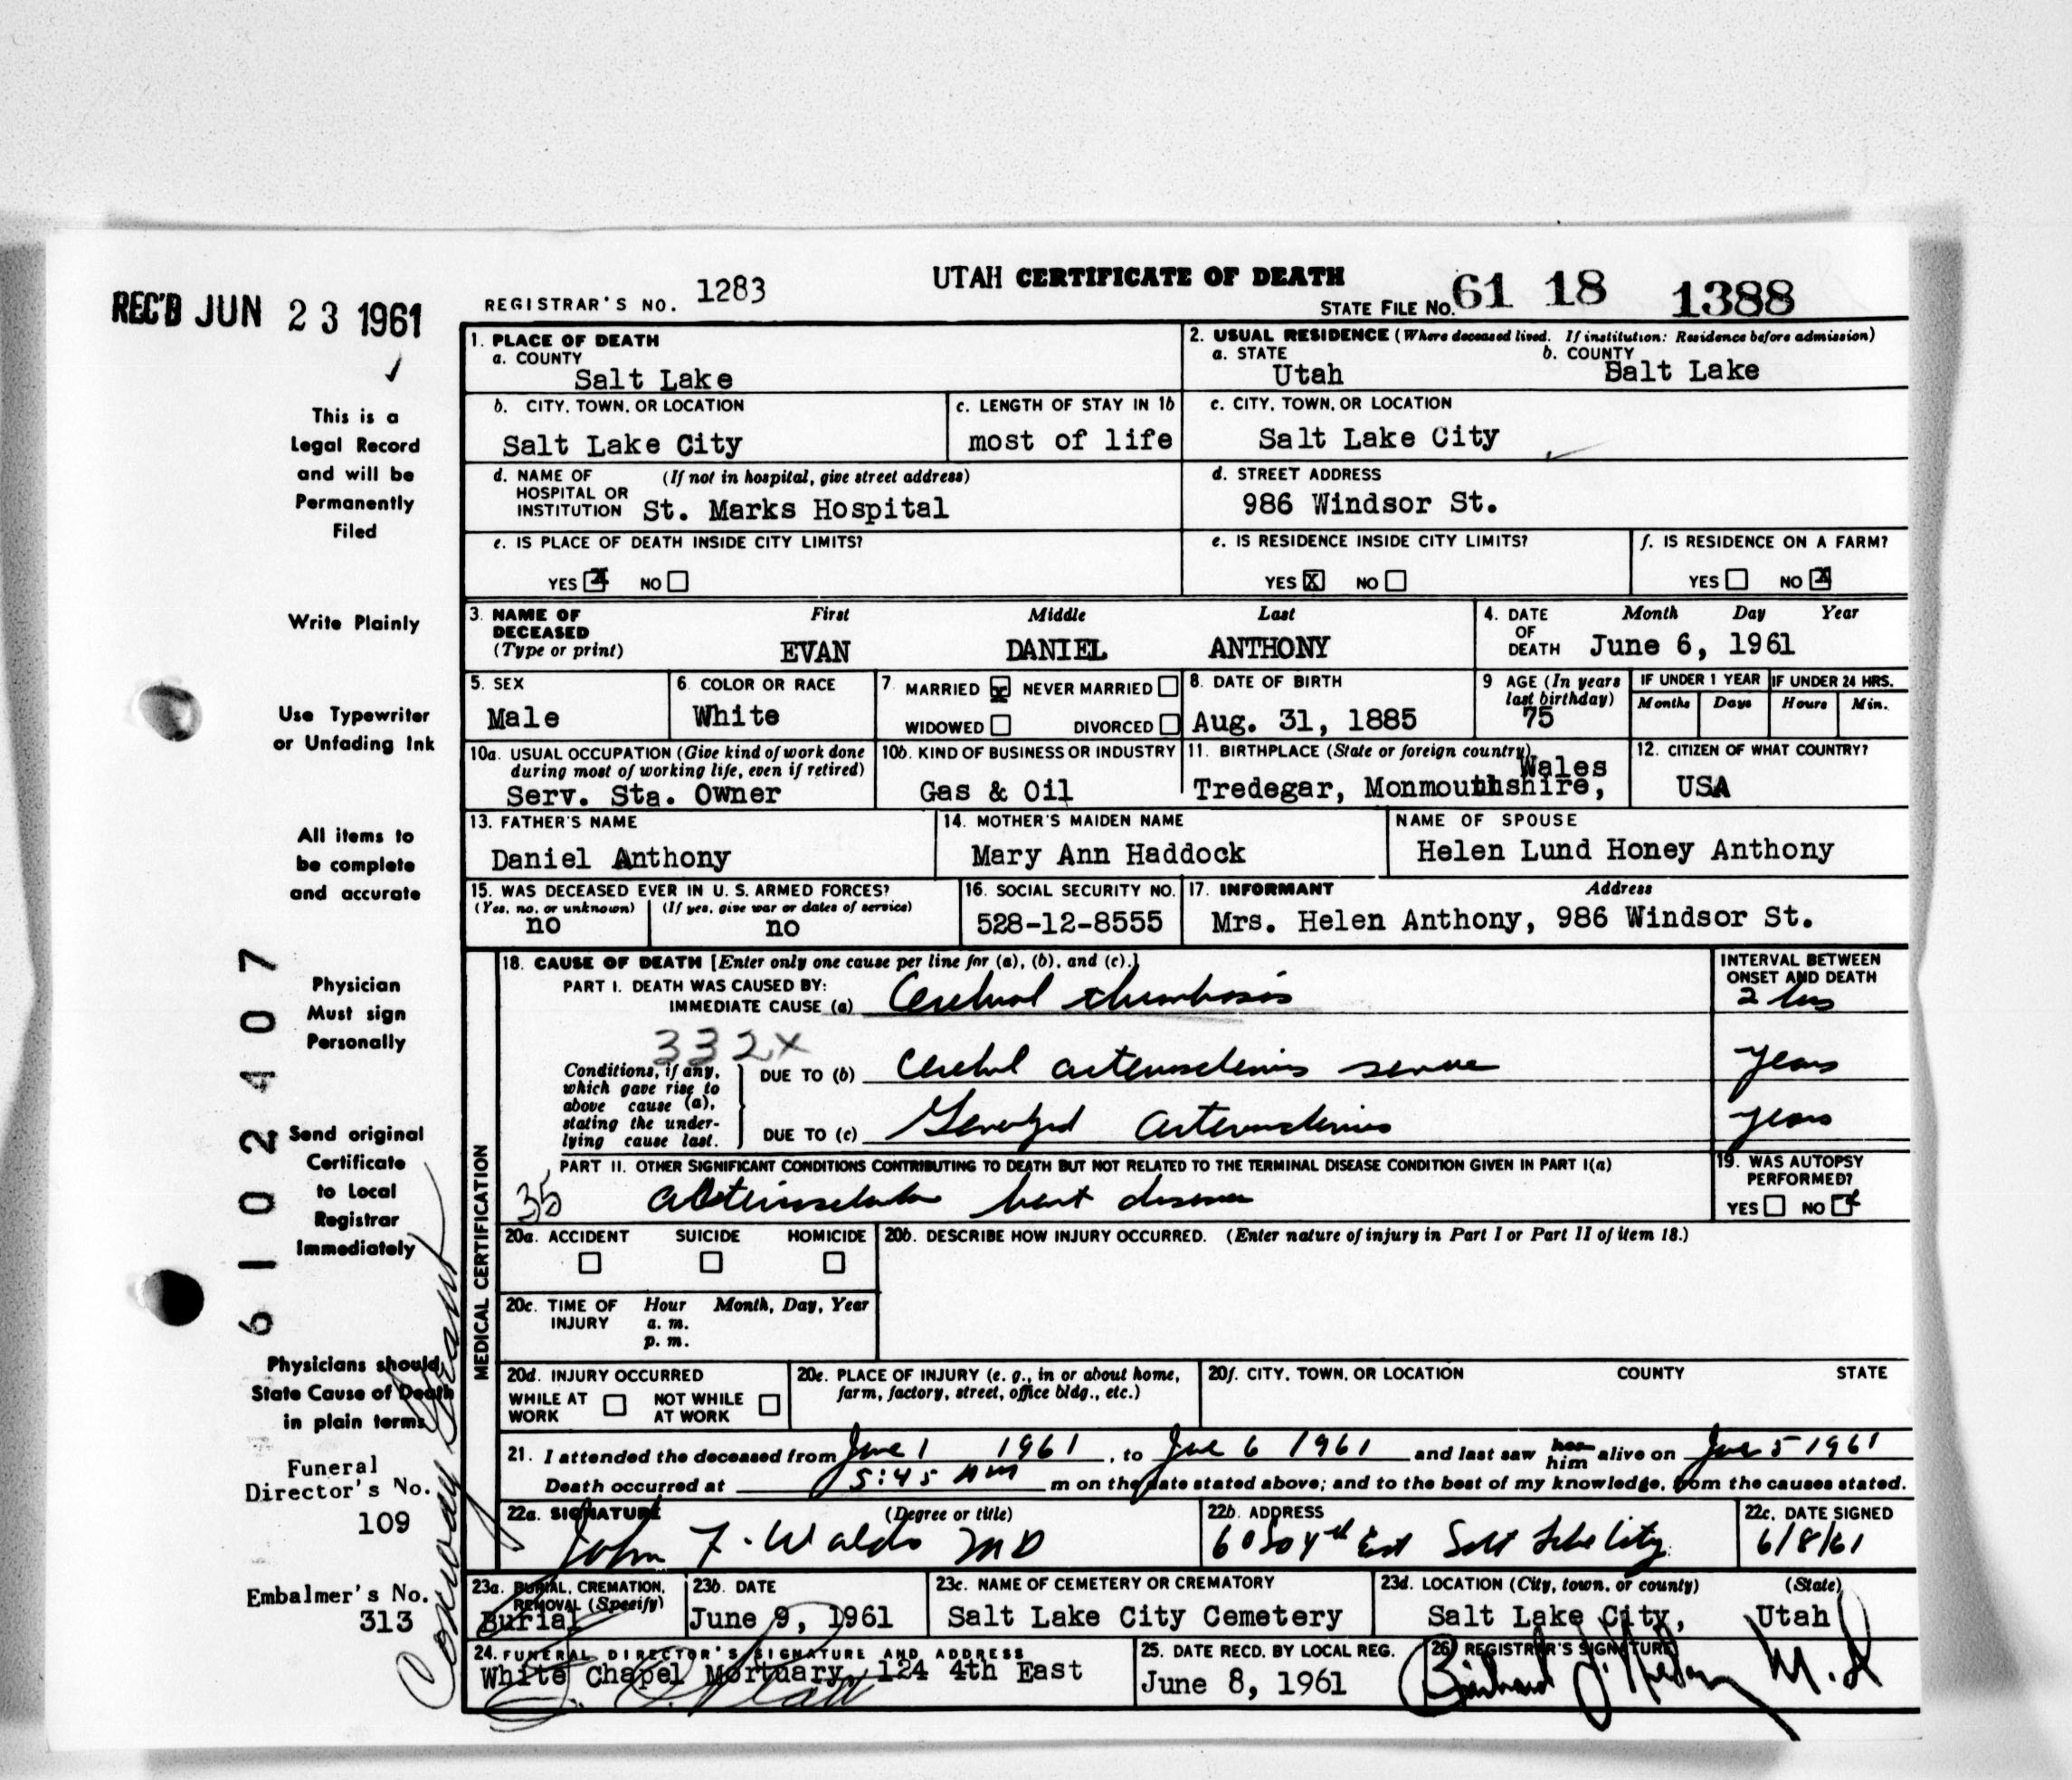 REC'D JUN 23 1961
REGISTRAR'S NO. 1283
UTAH CERTIFICATE OF DEATH
STATE FILE NO. 61 18 1388
This is a
Legal Record
and will be
Permanently
Filed
Write Plainly
Use Typewriter
or Unfading Ink
All items to
be complete
and accurate
Physician
Must sign
Personally
Send original
Certificate
to Local
Registrar
Immediately
Physicians should
State Cause of Death
in plain terms
Funeral
Director's No.
109
Embalmer's No.
313
6102407
1. PLACE OF DEATH
a. COUNTY
Salt Lake
2. USUAL RESIDENCE (Where deceased lived. If institution: Residence before admission)
a. STATE
Utah
b. COUNTY
Salt Lake
b. CITY, TOWN, OR LOCATION
Salt Lake City
c. LENGTH OF STAY IN 1b
most of life
c. CITY, TOWN, OR LOCATION
Salt Lake City
d. NAME OF HOSPITAL OR INSTITUTION (If not in hospital, give street address)
St. Marks Hospital
d. STREET ADDRESS
986 Windsor St.
e. IS PLACE OF DEATH INSIDE CITY LIMITS?
YES X NO
e. IS RESIDENCE INSIDE CITY LIMITS?
YES X NO
f. IS RESIDENCE ON A FARM?
YES NO X
3. NAME OF DECEASED (Type or print)
First Middle Last
EVAN DANIEL ANTHONY
4. DATE OF DEATH Month Day Year
June 6, 1961
5. SEX
Male
6. COLOR OR RACE
White
7. MARRIED X NEVER MARRIED
WIDOWED DIVORCED
8. DATE OF BIRTH
Aug. 31, 1885
9 AGE (In years last birthday)
75
IF UNDER 1 YEAR IF UNDER 24 HRS.
Months Days Hours Min.
10a. USUAL OCCUPATION (Give kind of work done during most of working life, even if retired)
Serv. Sta. Owner
10b. KIND OF BUSINESS OR INDUSTRY
Gas & Oil
11. BIRTHPLACE (State or foreign country)
Tredegar, Monmouthshire, Wales
12. CITIZEN OF WHAT COUNTRY?
USA
13. FATHER'S NAME
Daniel Anthony
14. MOTHER'S MAIDEN NAME
Mary Ann Haddock
NAME OF SPOUSE
Helen Lund Honey Anthony
15. WAS DECEASED EVER IN U. S. ARMED FORCES?
(Yes, no, or unknown) (If yes, give war or dates of service)
no no
16. SOCIAL SECURITY NO.
528-12-8555
17. INFORMANT Address
Mrs. Helen Anthony, 986 Windsor St.
MEDICAL CERTIFICATION
18. CAUSE OF DEATH [Enter only one cause per line for (a), (b), and (c).]
PART I. DEATH WAS CAUSED BY:
IMMEDIATE CAUSE (a) Cerebral thrombosis
INTERVAL BETWEEN ONSET AND DEATH
2 hrs
332X
Conditions, if any, which gave rise to above cause (a), stating the underlying cause last.
DUE TO (b) Cerebral arteriosclerosis severe
years
DUE TO (c) Generalized arteriosclerosis
years
PART II. OTHER SIGNIFICANT CONDITIONS CONTRIBUTING TO DEATH BUT NOT RELATED TO THE TERMINAL DISEASE CONDITION GIVEN IN PART I(a)
35 arteriosclerotic heart disease
19. WAS AUTOPSY PERFORMED?
YES NO X
20a. ACCIDENT SUICIDE HOMICIDE
20b. DESCRIBE HOW INJURY OCCURRED. (Enter nature of injury in Part I or Part II of item 18.)
20c. TIME OF INJURY Hour Month, Day, Year
a. m.
p. m.
20d. INJURY OCCURRED
WHILE AT WORK NOT WHILE AT WORK
20e. PLACE OF INJURY (e. g., in or about home, farm, factory, street, office bldg., etc.)
20f. CITY, TOWN, OR LOCATION COUNTY STATE
21. I attended the deceased from June 1 1961, to June 6 1961 and last saw her him alive on June 5 1961
Death occurred at 5:45 AM m on the date stated above; and to the best of my knowledge, from the causes stated.
22a. SIGNATURE (Degree or title)
John F. Waldo MD
22b. ADDRESS
60 So 4th East Salt Lake City
22c. DATE SIGNED
6/8/61
23a. BURIAL, CREMATION, REMOVAL (Specify)
Burial
23b. DATE
June 9, 1961
23c. NAME OF CEMETERY OR CREMATORY
Salt Lake City Cemetery
23d. LOCATION (City, town, or county) (State)
Salt Lake City, Utah
24. FUNERAL DIRECTOR'S SIGNATURE AND ADDRESS
White Chapel Mortuary, 124 4th East
25. DATE RECD. BY LOCAL REG.
June 8, 1961
26. REGISTRAR'S SIGNATURE